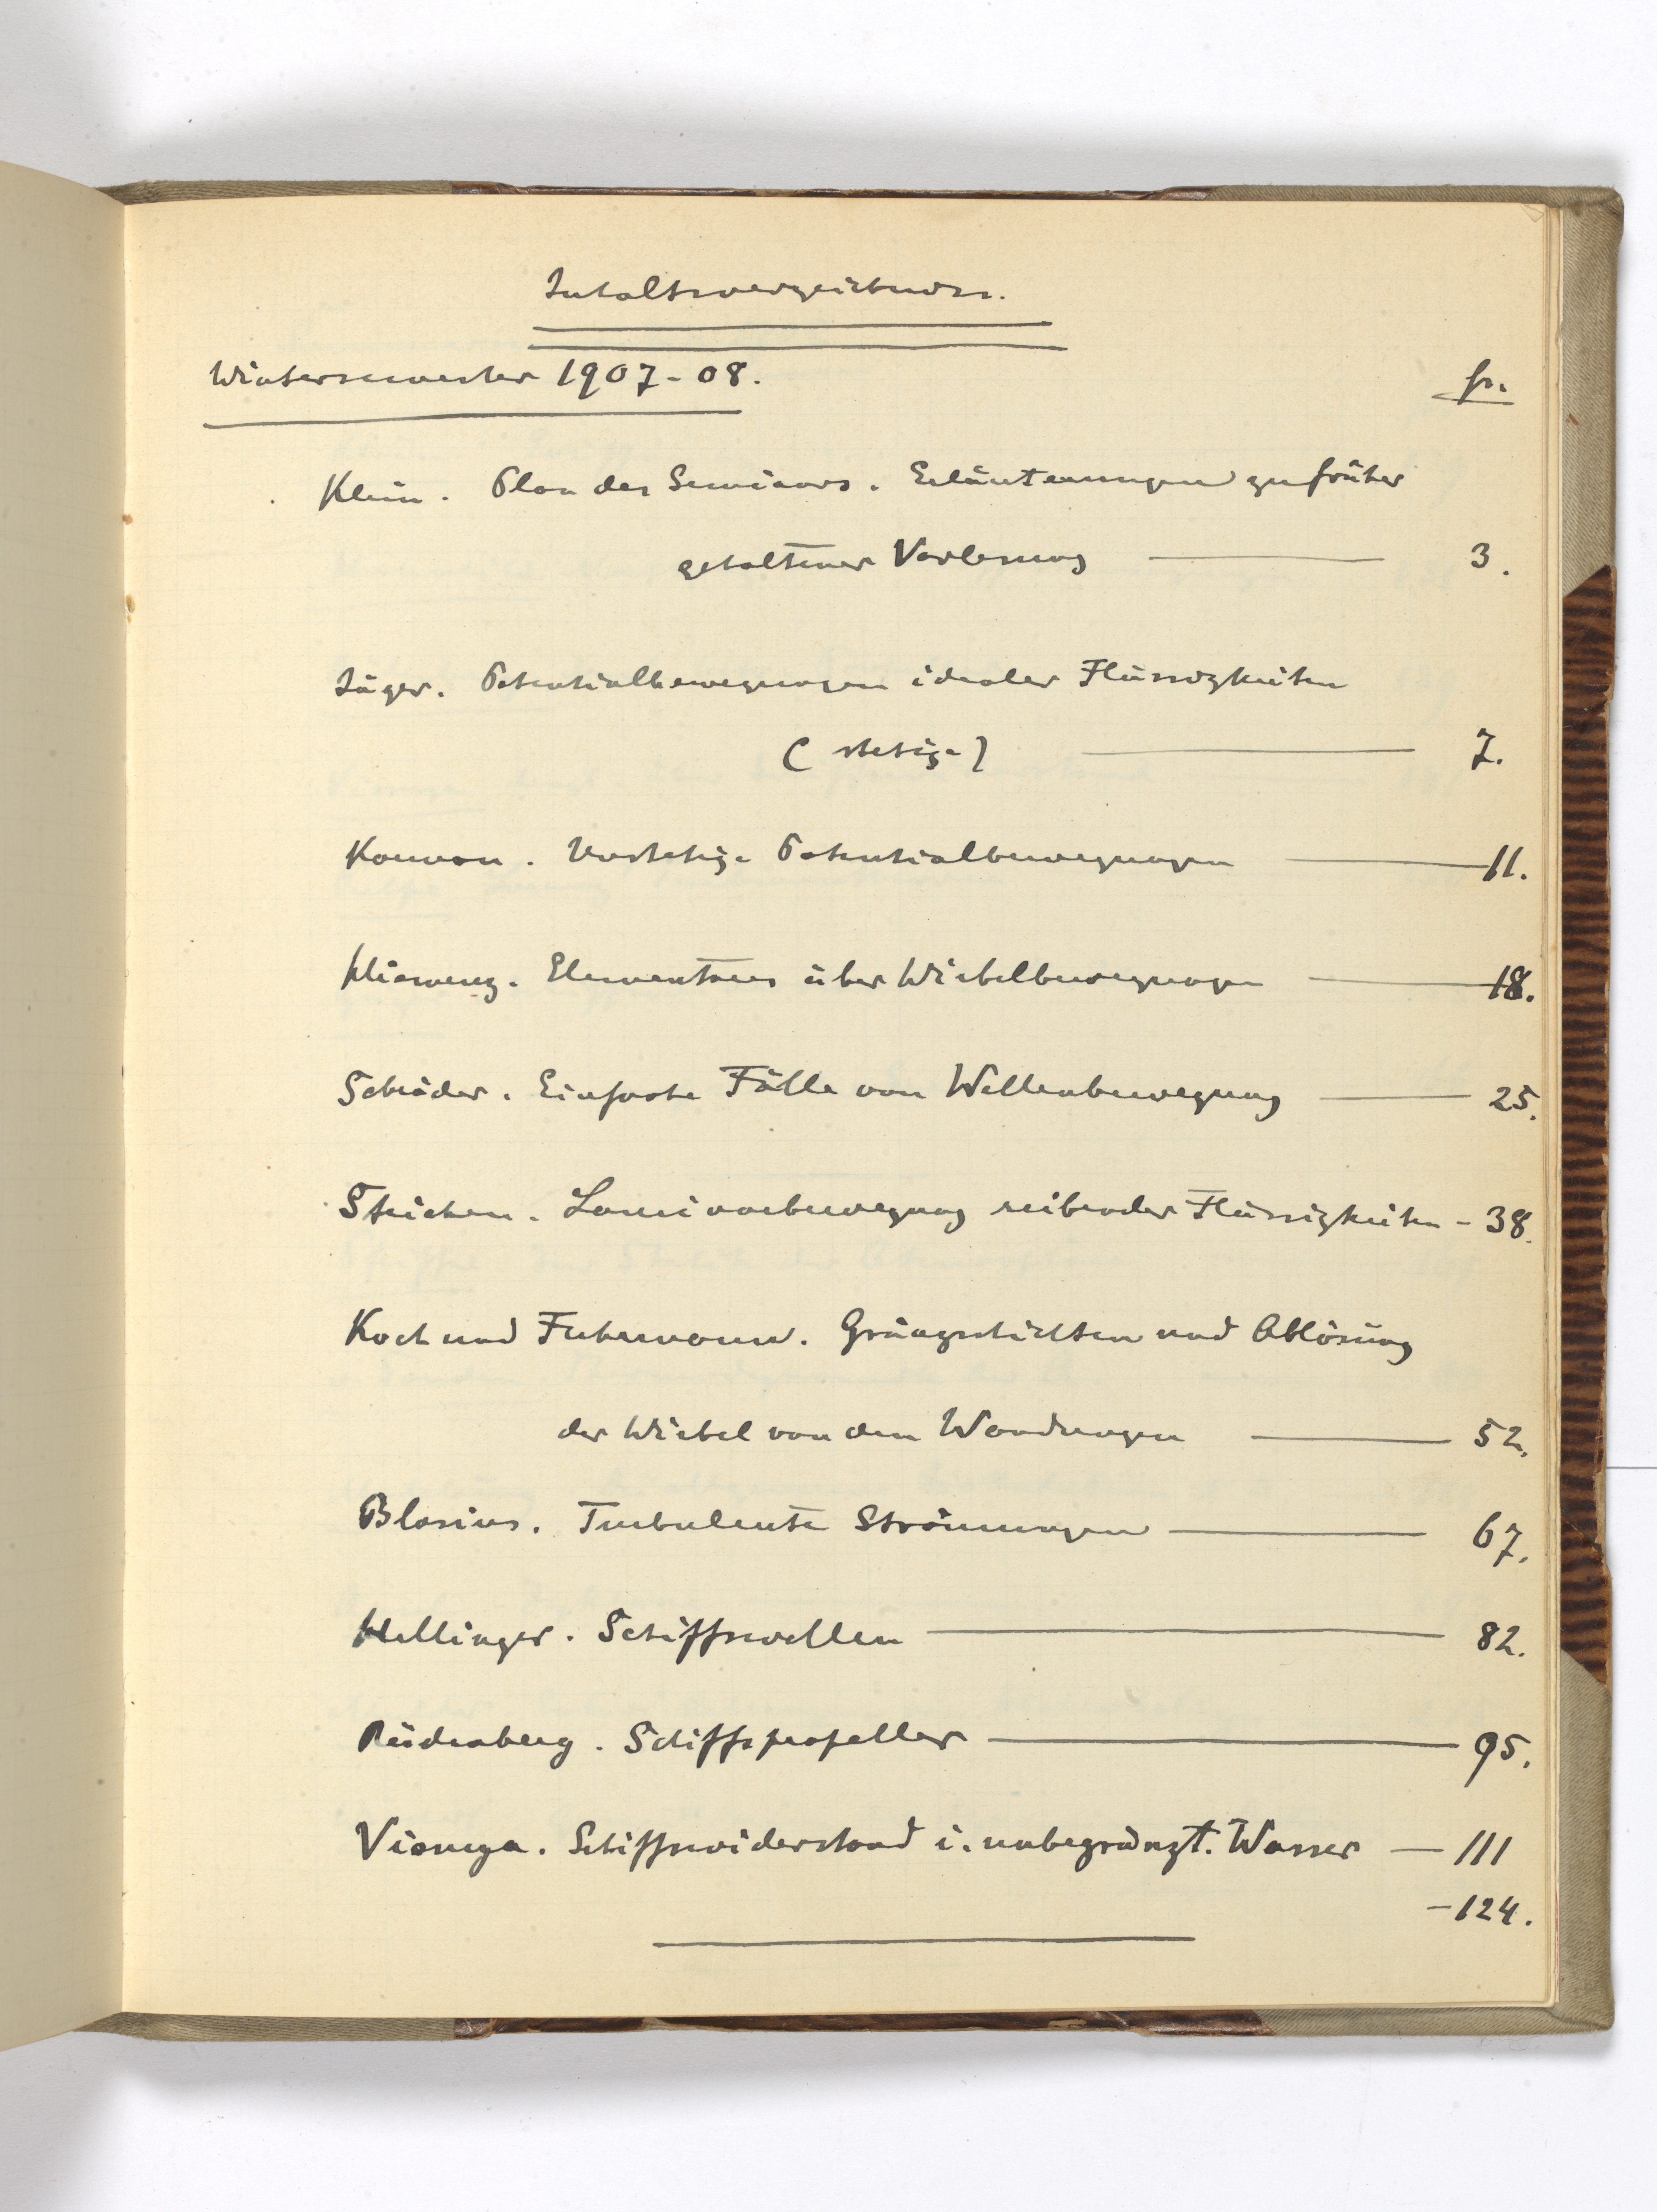 Inhaltsverzeichniss.
Wintersemester 1907-08.
pr.
Klein. Plan des Seminars. Erläuterungen zu früher
gehaltener Vorlesung — 3.
Jäger. Potentialbewegungen idealer Flüssigkeiten
(stetige) — 7.
Unstetige Potentialbewegungen — 11.
Hiemenz. Elementares über Wirbelbewegungen — 18.
Schröder. Einfache Fälle von Wellenbewegung — 25.
Laminarbewegung reibender Flüssigkeiten - 38.
Koch und Fuhrmann. Gränzschichten und Ablösung
der Wirbel von den Wandungen — 52.
Blasius. Turbulente Strömungen — 67.
Hellinger. Schiffswellen — 82.
Rüdenberg. Schiffspropeller — 95.
Schiffswiderstand i. unbegränzt. Wasser — 111
-124.